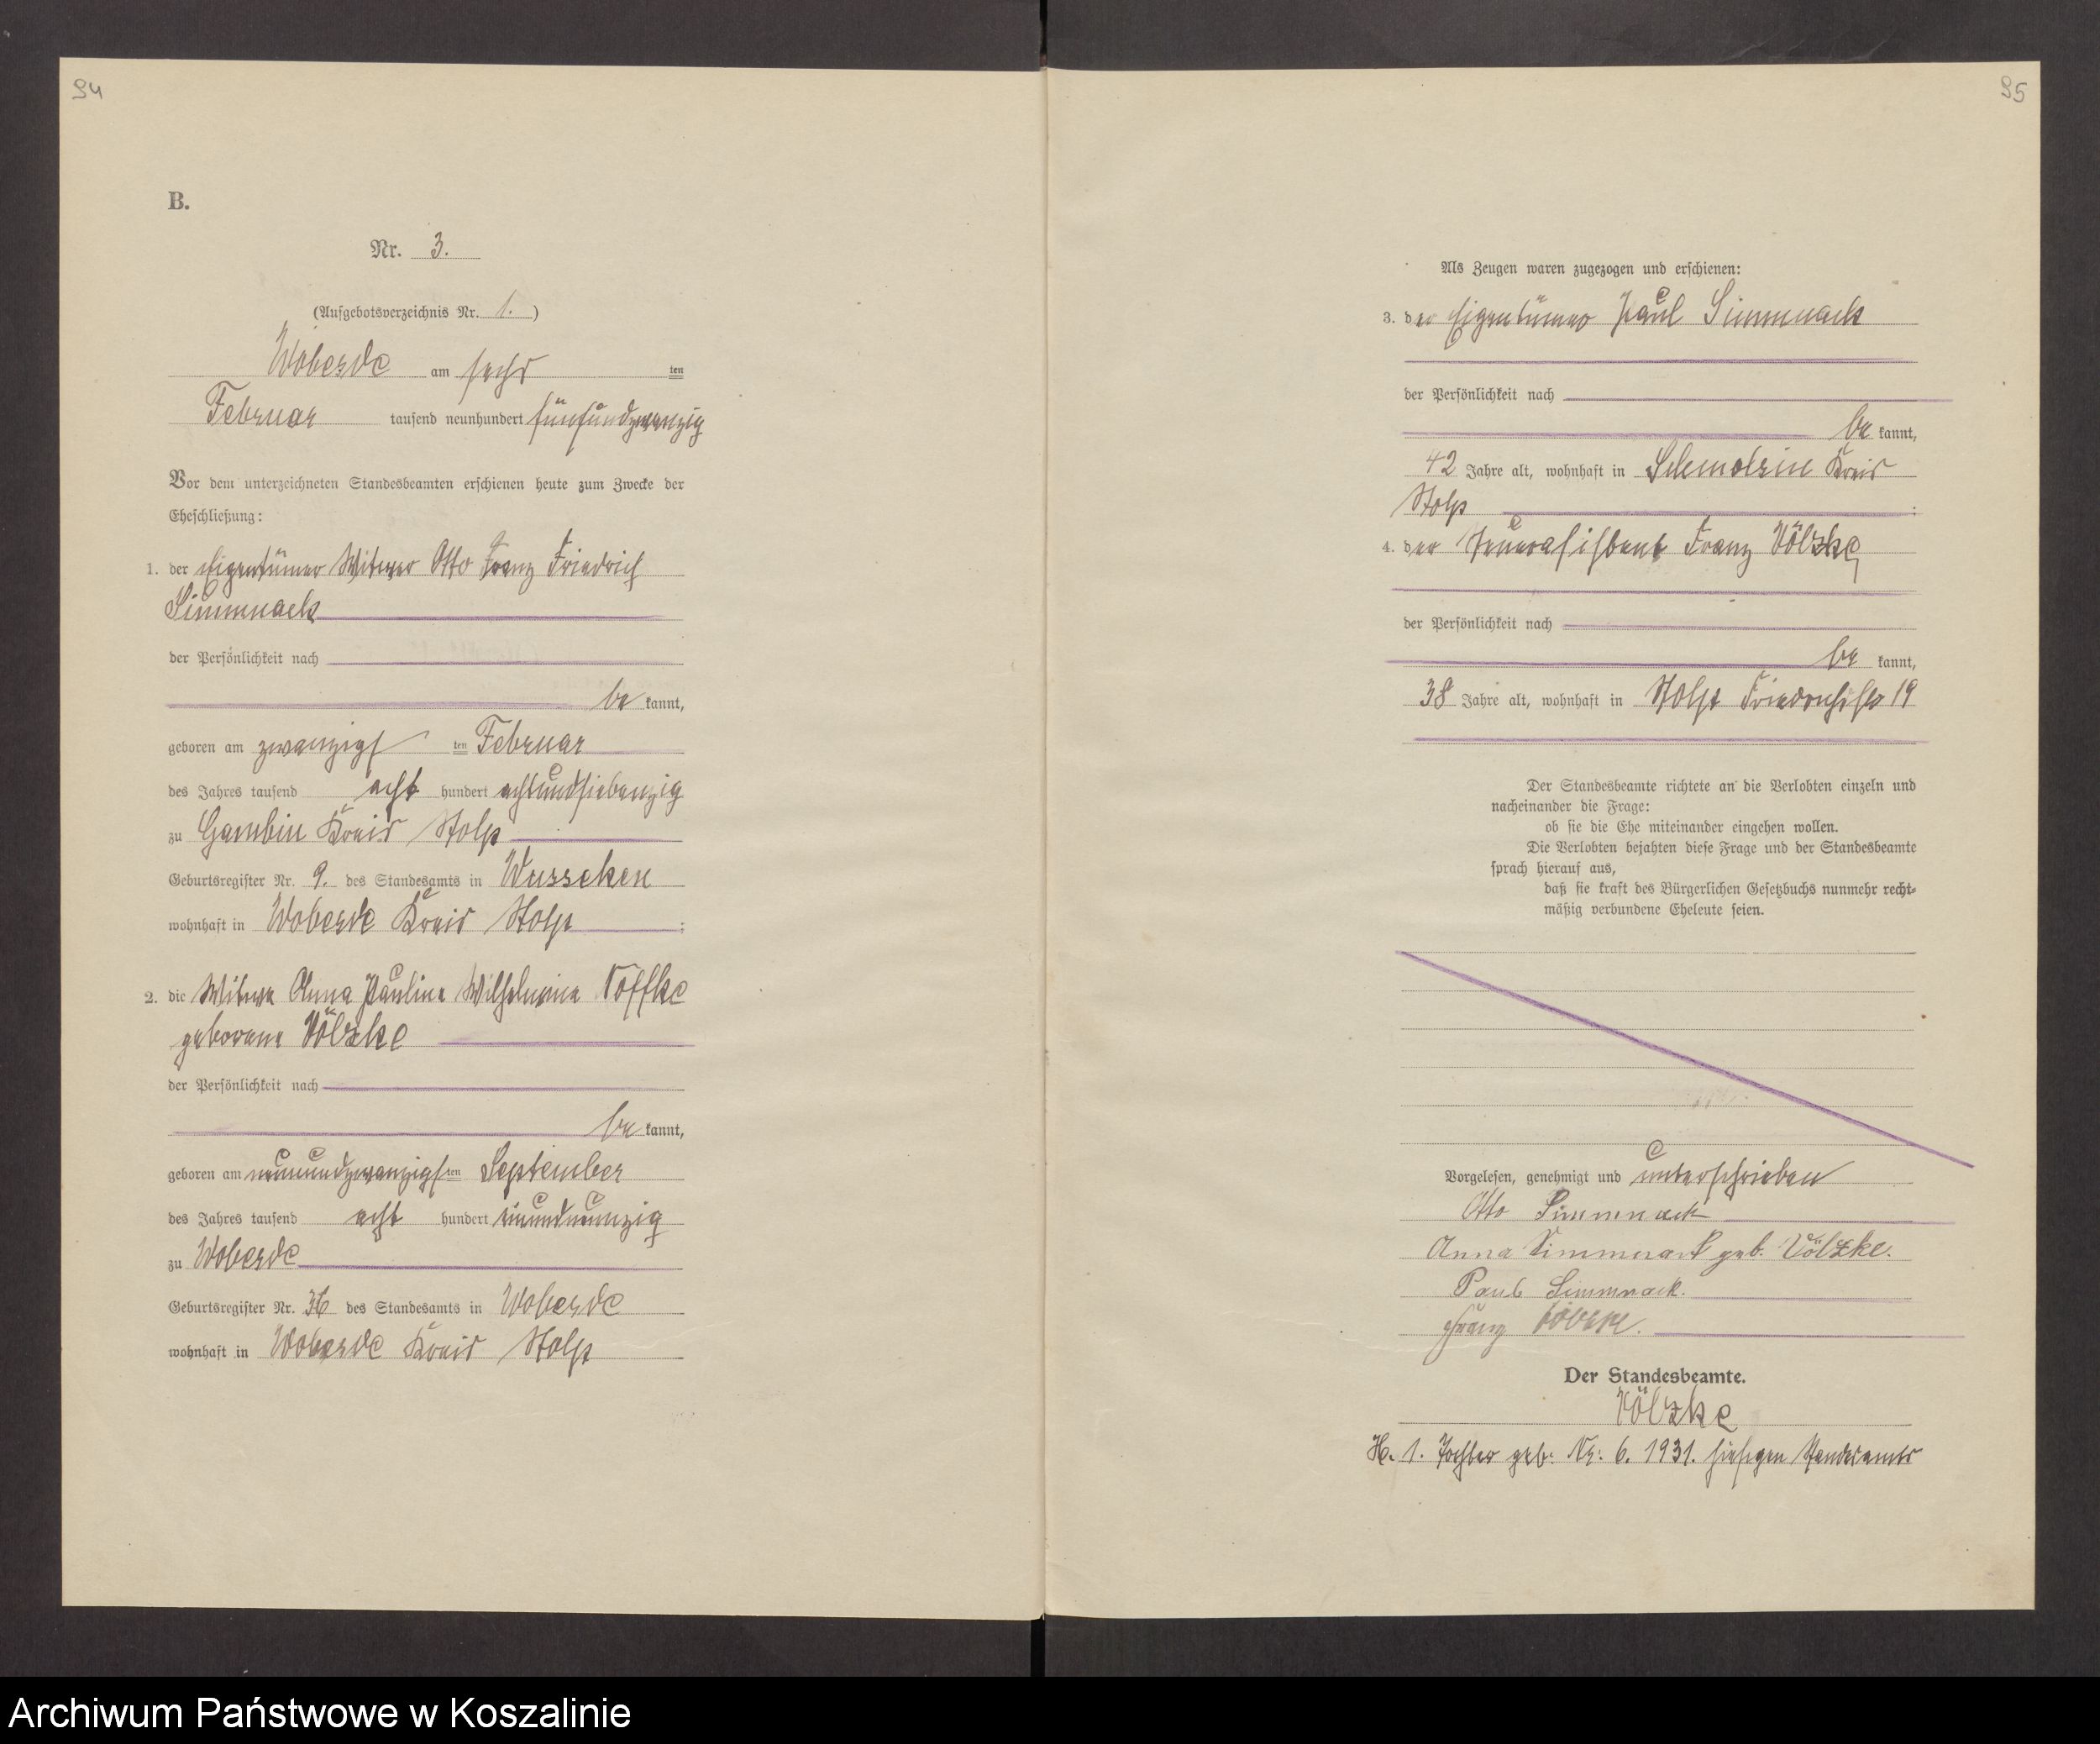 94
B.
Nr. 3.
(Aufgebotsverzeichnis Nr. 1.)
Woberde am sechs ten
Februar tausend neunhundert fünfundzwanzig
Vor dem unterzeichneten Standesbeamten erschienen heute zum Zwecke der
Eheschließung:
1. der Eigentümer Witwer Otto Franz Friedrich
Simmnack
der Persönlichkeit nach
be kannt,
geboren am zwanzigs ten Februar
des Jahres tausend acht hundert achtundsiebenzig
zu Gambin Kreis Stolp
Geburtsregister Nr. 9. des Standesamts in Wusseken
wohnhaft in Woberde Kreis Stolp ;
2. die Witwe Anna Pauline Wilhelmine Noffke
geborene Völzke
der Persönlichkeit nach
be kannt,
geboren am neunundzwanzigs ten September
des Jahres tausend acht hundert einundneunzig
zu Woberde
Geburtsregister Nr. 36 des Standesamts in Woberde
wohnhaft in Woberde Kreis Stolp
95
Als Zeugen waren zugezogen und erschienen:
3. der Eigentümer Paul Simmnack
der Persönlichkeit nach
be kannt,
42 Jahre alt, wohnhaft in Schmolsin Kreis
Stolp ;
4. der Franz Völzke
der Persönlichkeit nach
be kannt,
38 Jahre alt, wohnhaft in Stolp 19
Der Standesbeamte richtete an die Verlobten einzeln und
nacheinander die Frage:
ob sie die Ehe miteinander eingehen wollen.
Die Verlobten bejahten diese Frage und der Standesbeamte
sprach hierauf aus,
daß sie kraft des Bürgerlichen Gesetzbuchs nunmehr recht-
mäßig verbundene Eheleute seien.
Vorgelesen, genehmigt und unterschrieben
Otto Simmnack
Anna Simmnack geb. Völzke.
Paul Simmnack.
Franz Völzke.
Der Standesbeamte.
Völzke
H. 1. Tochter geb. Nr: 6. 1931. hiesigen Standesamts
Archiwum Państwowe w Koszalinie